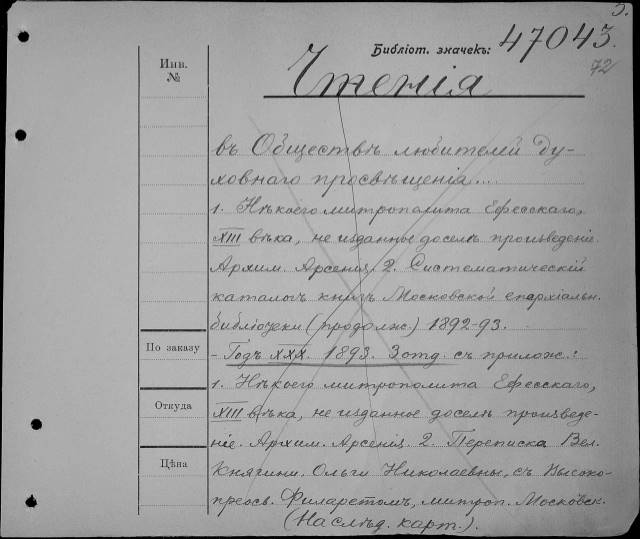 5.
Библіот. значекъ: 47043.
72
Инв.
№
Чтенія
въ Обществѣ любителей Ду-
ховнаго просвѣщенія...
1. Нѣкоего митрополита Ефесскаго,
XIII вѣка, не изданное доселѣ произведеніе.
Архим. Арсеній. 2. Систематическій
каталогъ книгъ Московской епархіальн.
библіотеки (продолж.) 1892-93.
По заказу
- Годъ XXX. 1893. 3 отд. съ прилож.:
1. Нѣкоего митрополита Ефесскаго,
Откуда
XIII вѣка, не изданное доселѣ произведе-
ніе. Архим. Арсеній. 2. Переписка Вел.
Цѣна
Княгини Ольги Николаевны, съ Высоко-
преосв. Филаретомъ, митроп. Московск.
(На слѣд. карт.).